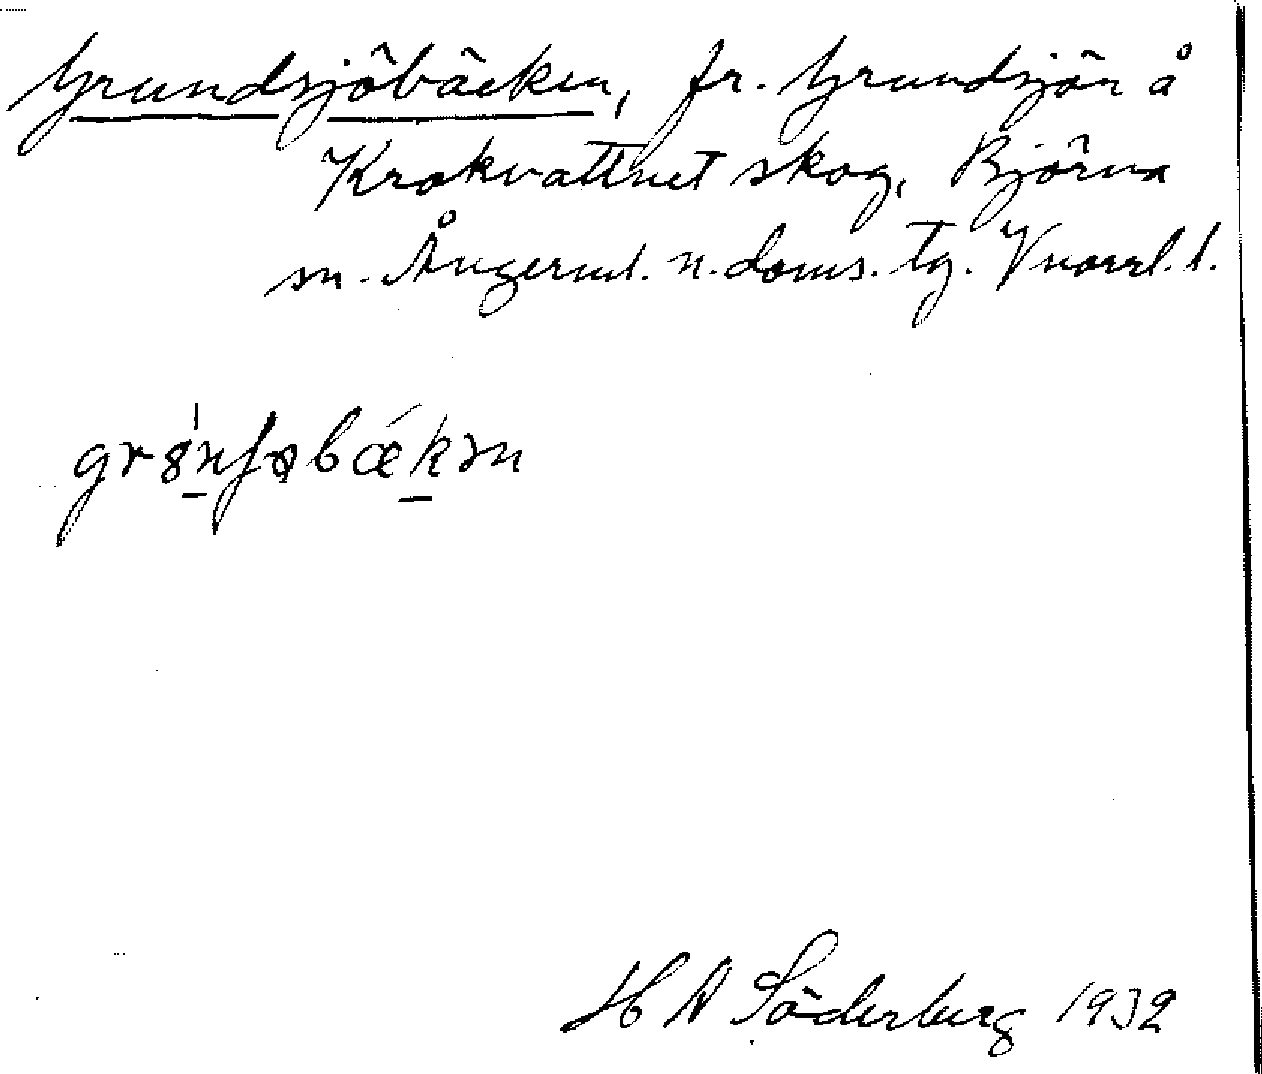 Grundsjöbäcken, fr. Grundsjön å
Krokvattnet skog, Björna
sn. Ångerml. n. doms. tg. Vnorrl. l.
H A Söderberg 1932